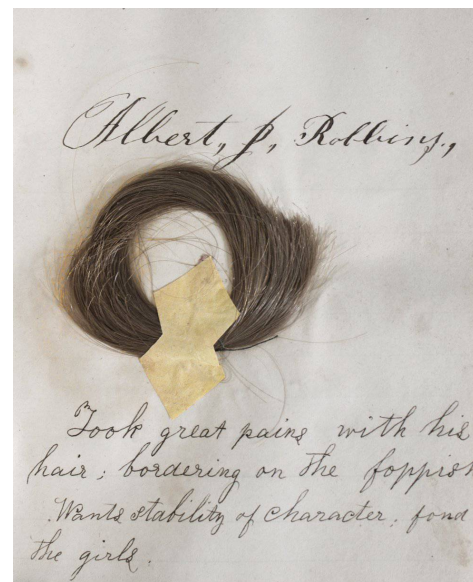 Albert, J, Robbins,
Took great pains with his
hair; bordering on the foppish
Wants stability of character, fond
the girls.